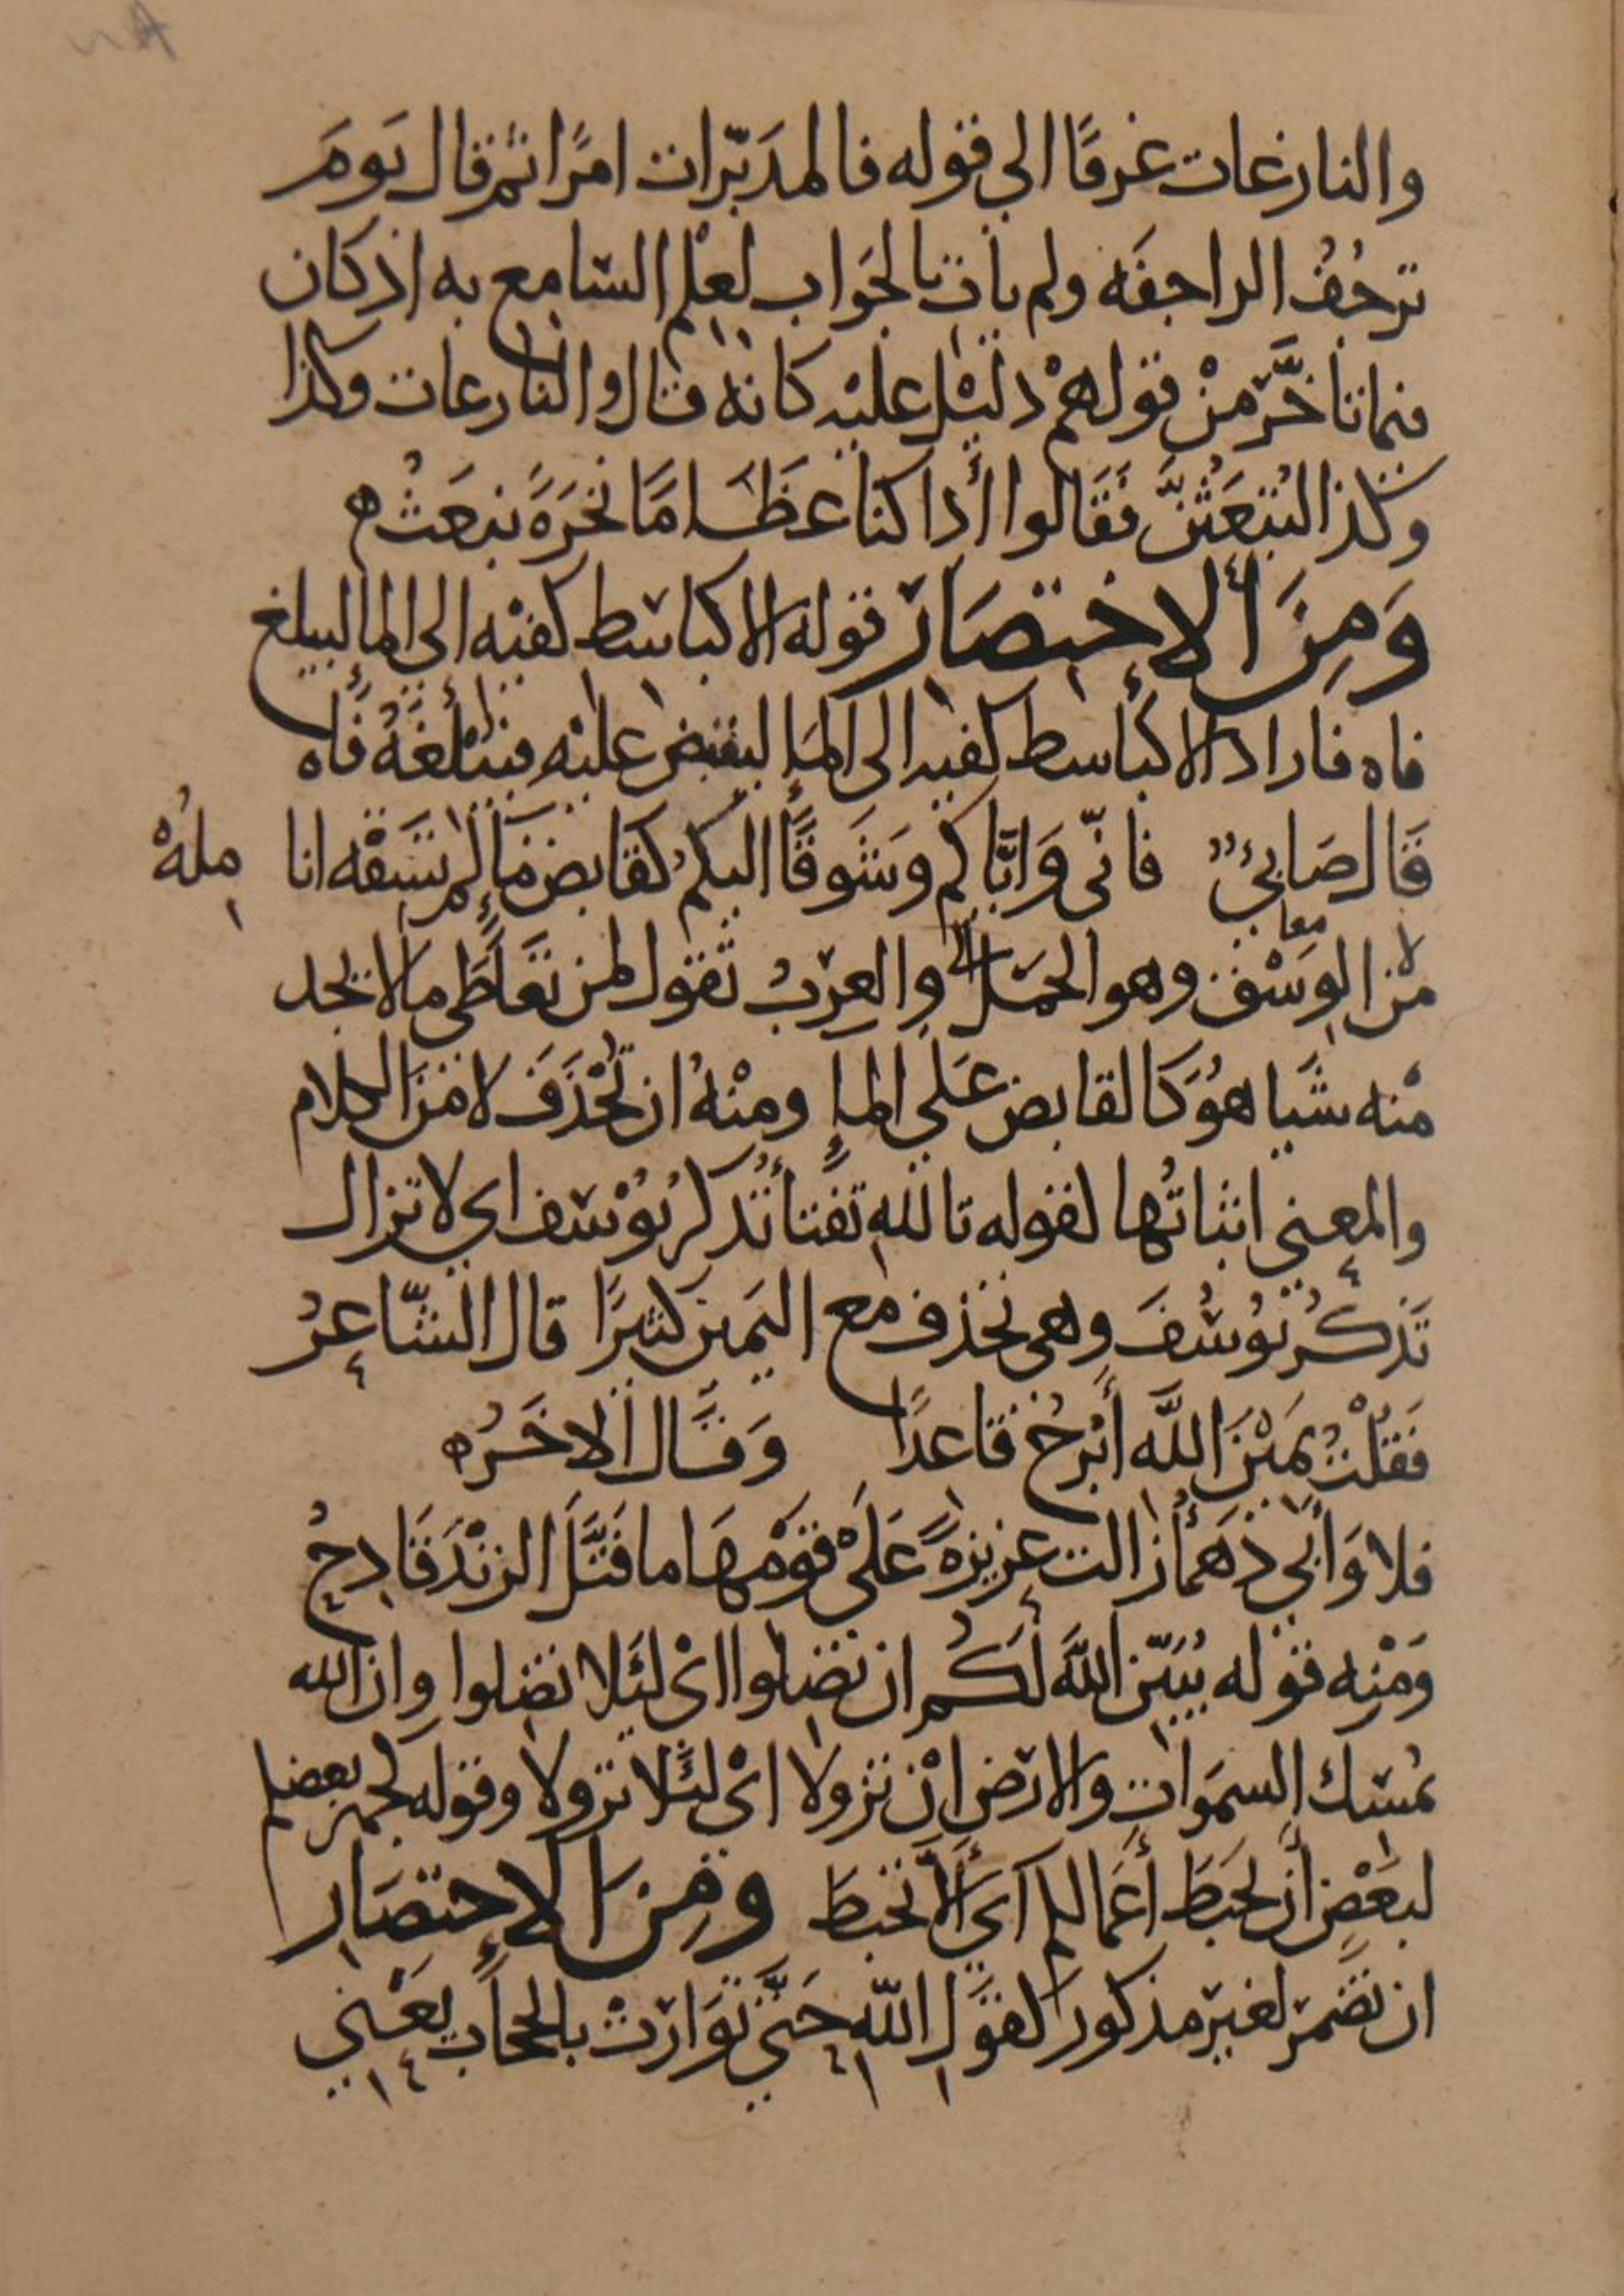 والنازعات غرقًا الى قوله فالمدَبّرات امرًا ثم قال يَومَ
ترجُفُ الراجفَه ولم يات بالجَواب لعلْم السّامع به اذ كان
فيما تاخَّر منْ قولهمْ دليْل عليْه كانه قال والنازعات وكذا
وكذا لتُبعَثُنَّ فَقَالوا أذا كنا عظَامًا نخرَةً نبعَثُ ه
وَمِنَ الاختصَار قوله الا كباسط كفيْه الى الما ليبلغ
فاه فاراد الا كباسط كفيه الى الماء ليقبض عليْه فيَبْلغَهُ فَاه
قَال ضَابئ فانّي وَايّاكم وَشَوقًا اليكم كقابض مَاء لم تَسقْه انا
ملهْ
معا
من الوسْق وهو الحمْل والعربُ تقول لمن تعَاطَى ما لا يجد
منْه شَيا هوَ كالقابض عَلى الماء ومنْهُ ان تُحْذَفَ لا منَ الكلام
والمعنى اثباتُها لقوله تاللهِ تفتأ تَذكرُ يوْسف اي لا تزال
تَذكُر يُوسُفَ وهى تحذف مع اليَمين كثيرًا قال الشّاعرُ
فَقلْتُ يَميْنَ اللَّه أبْرحُ قاعدًا وَقَال الاخَرُ ه
فلا وَأبي دَهمأ زالت عزيزةً عَلى قوْمهَا ما فَتَّلَ الزنْدَ قَادحُ
وَمنْه قوله يُبَيّن اللَّه لكُم ان تضلوا اىْ لئَلا تضلوا وان الله
يُمْسك السمَوات والارض انْ تزولا اىْ لئَلا تزولا وقوله كجهر بعضكم
لبَعْضٍ أن تحبَطَ أعمالكم اىَ الّا تحبط وَمِنَ الاختصَار
ان تضْمر لغيْر مذكور كقوْل اللّه حَتَّى تَوَارَتْ بالحجَاب يَعْني